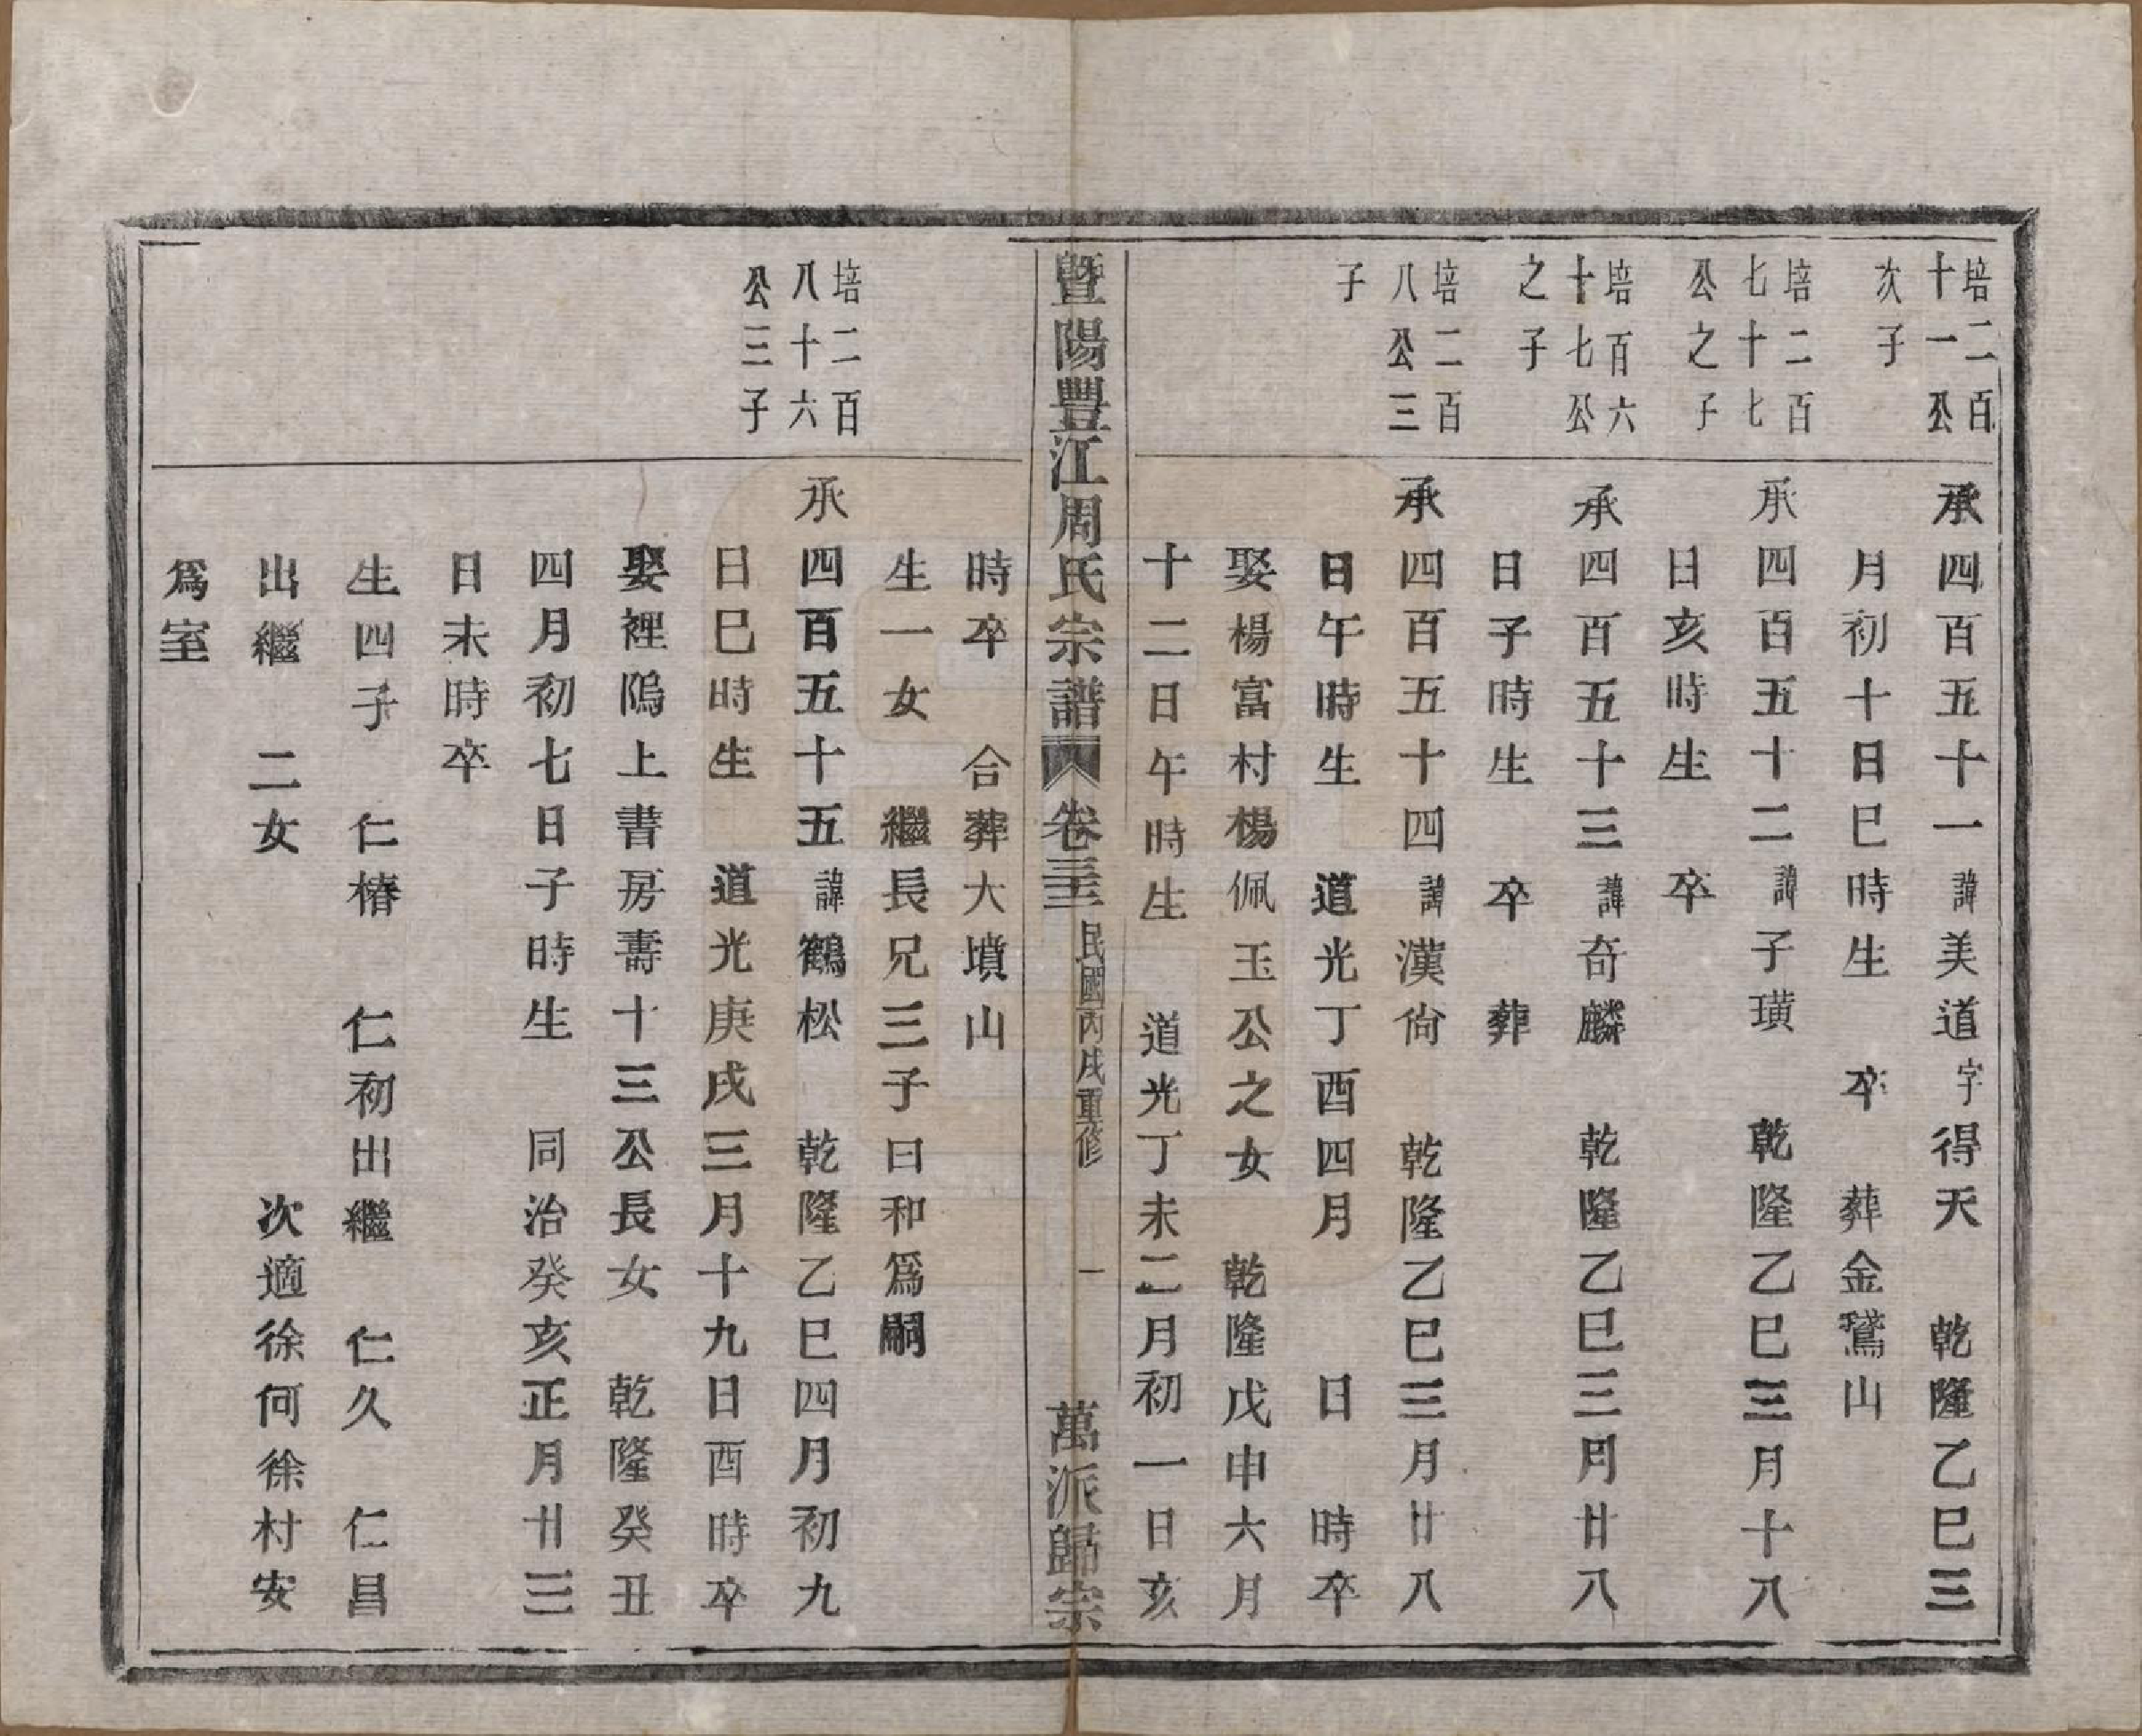 培二百
十一公
次子
承四百五十一諱美道字得天　乾隆乙巳三
月初十日巳時生　卒　葬金鵞山
培二百
七十七
公之子
承四百五十二諱子璜　乾隆乙巳三月十八
日亥時生　卒
培百六
十七公
之子
承四百五十三諱奇麟　乾隆乙巳三月廿八
日子時生　卒　葬
培二百
八公三
子
承四百五十四諱漢尙　乾隆乙巳三月廿八
日午時生　道光丁酉四月　日　時卒
娶楊富村楊佩玉公之女　乾隆戊申六月
十二日午時生　道光丁未二月初一日亥
暨陽豐江周氏宗譜　卷三十三　民國丙戌重修　一　萬派歸宗
時卒　合葬大墳山
生一女　繼長兄三子曰和爲嗣
培二百
八十六
公三子
承四百五十五諱鶴松　乾隆乙巳四月初九
日巳時生　道光庚戌三月十九日酉時卒
娶裡隖上書房壽十三公長女　乾隆癸丑
四月初七日子時生　同治癸亥正月廿三
日未時卒
生四子　仁椿　仁初出繼　仁久　仁昌
出繼　二女　次適徐何徐村安
爲室